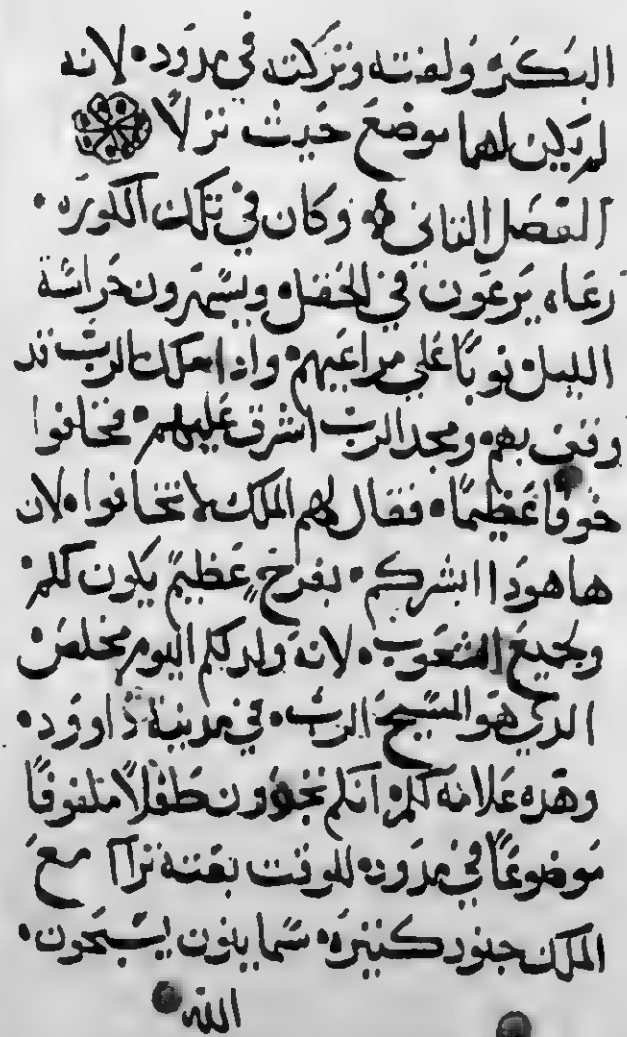 البكر ولفته وتركته في مدود. لانه
لم يكن لهما موضع حيث نزلا
الفصل الثاني وكان في تلك الكوره.
رعاه يرعون في الحقل ويسهرون حراسة
الليل نوبًا علي مراعيهم. واذا ملاك الرب قد
وقف بهم ومجد الرب اشرق عليهم. فخافوا
خوفًا عظيمًا. فقال لهم الملك لا تخافوا. لان
ها هوذا ابشركم. بفرحٍ عظيمٍ يكون لكم
ولجميع الشعوب. لانه ولد لكم اليوم مخلص
الدي هو المسيح الرب. في مدينة داوود.
وهده علامه لكم. انكم تجدون طفلاً ملفوفًا
موضوعًا في مدود. للوقت بغتة ترآا مع
الملك جنود كثيره. سمايئون يسبحون.
الله